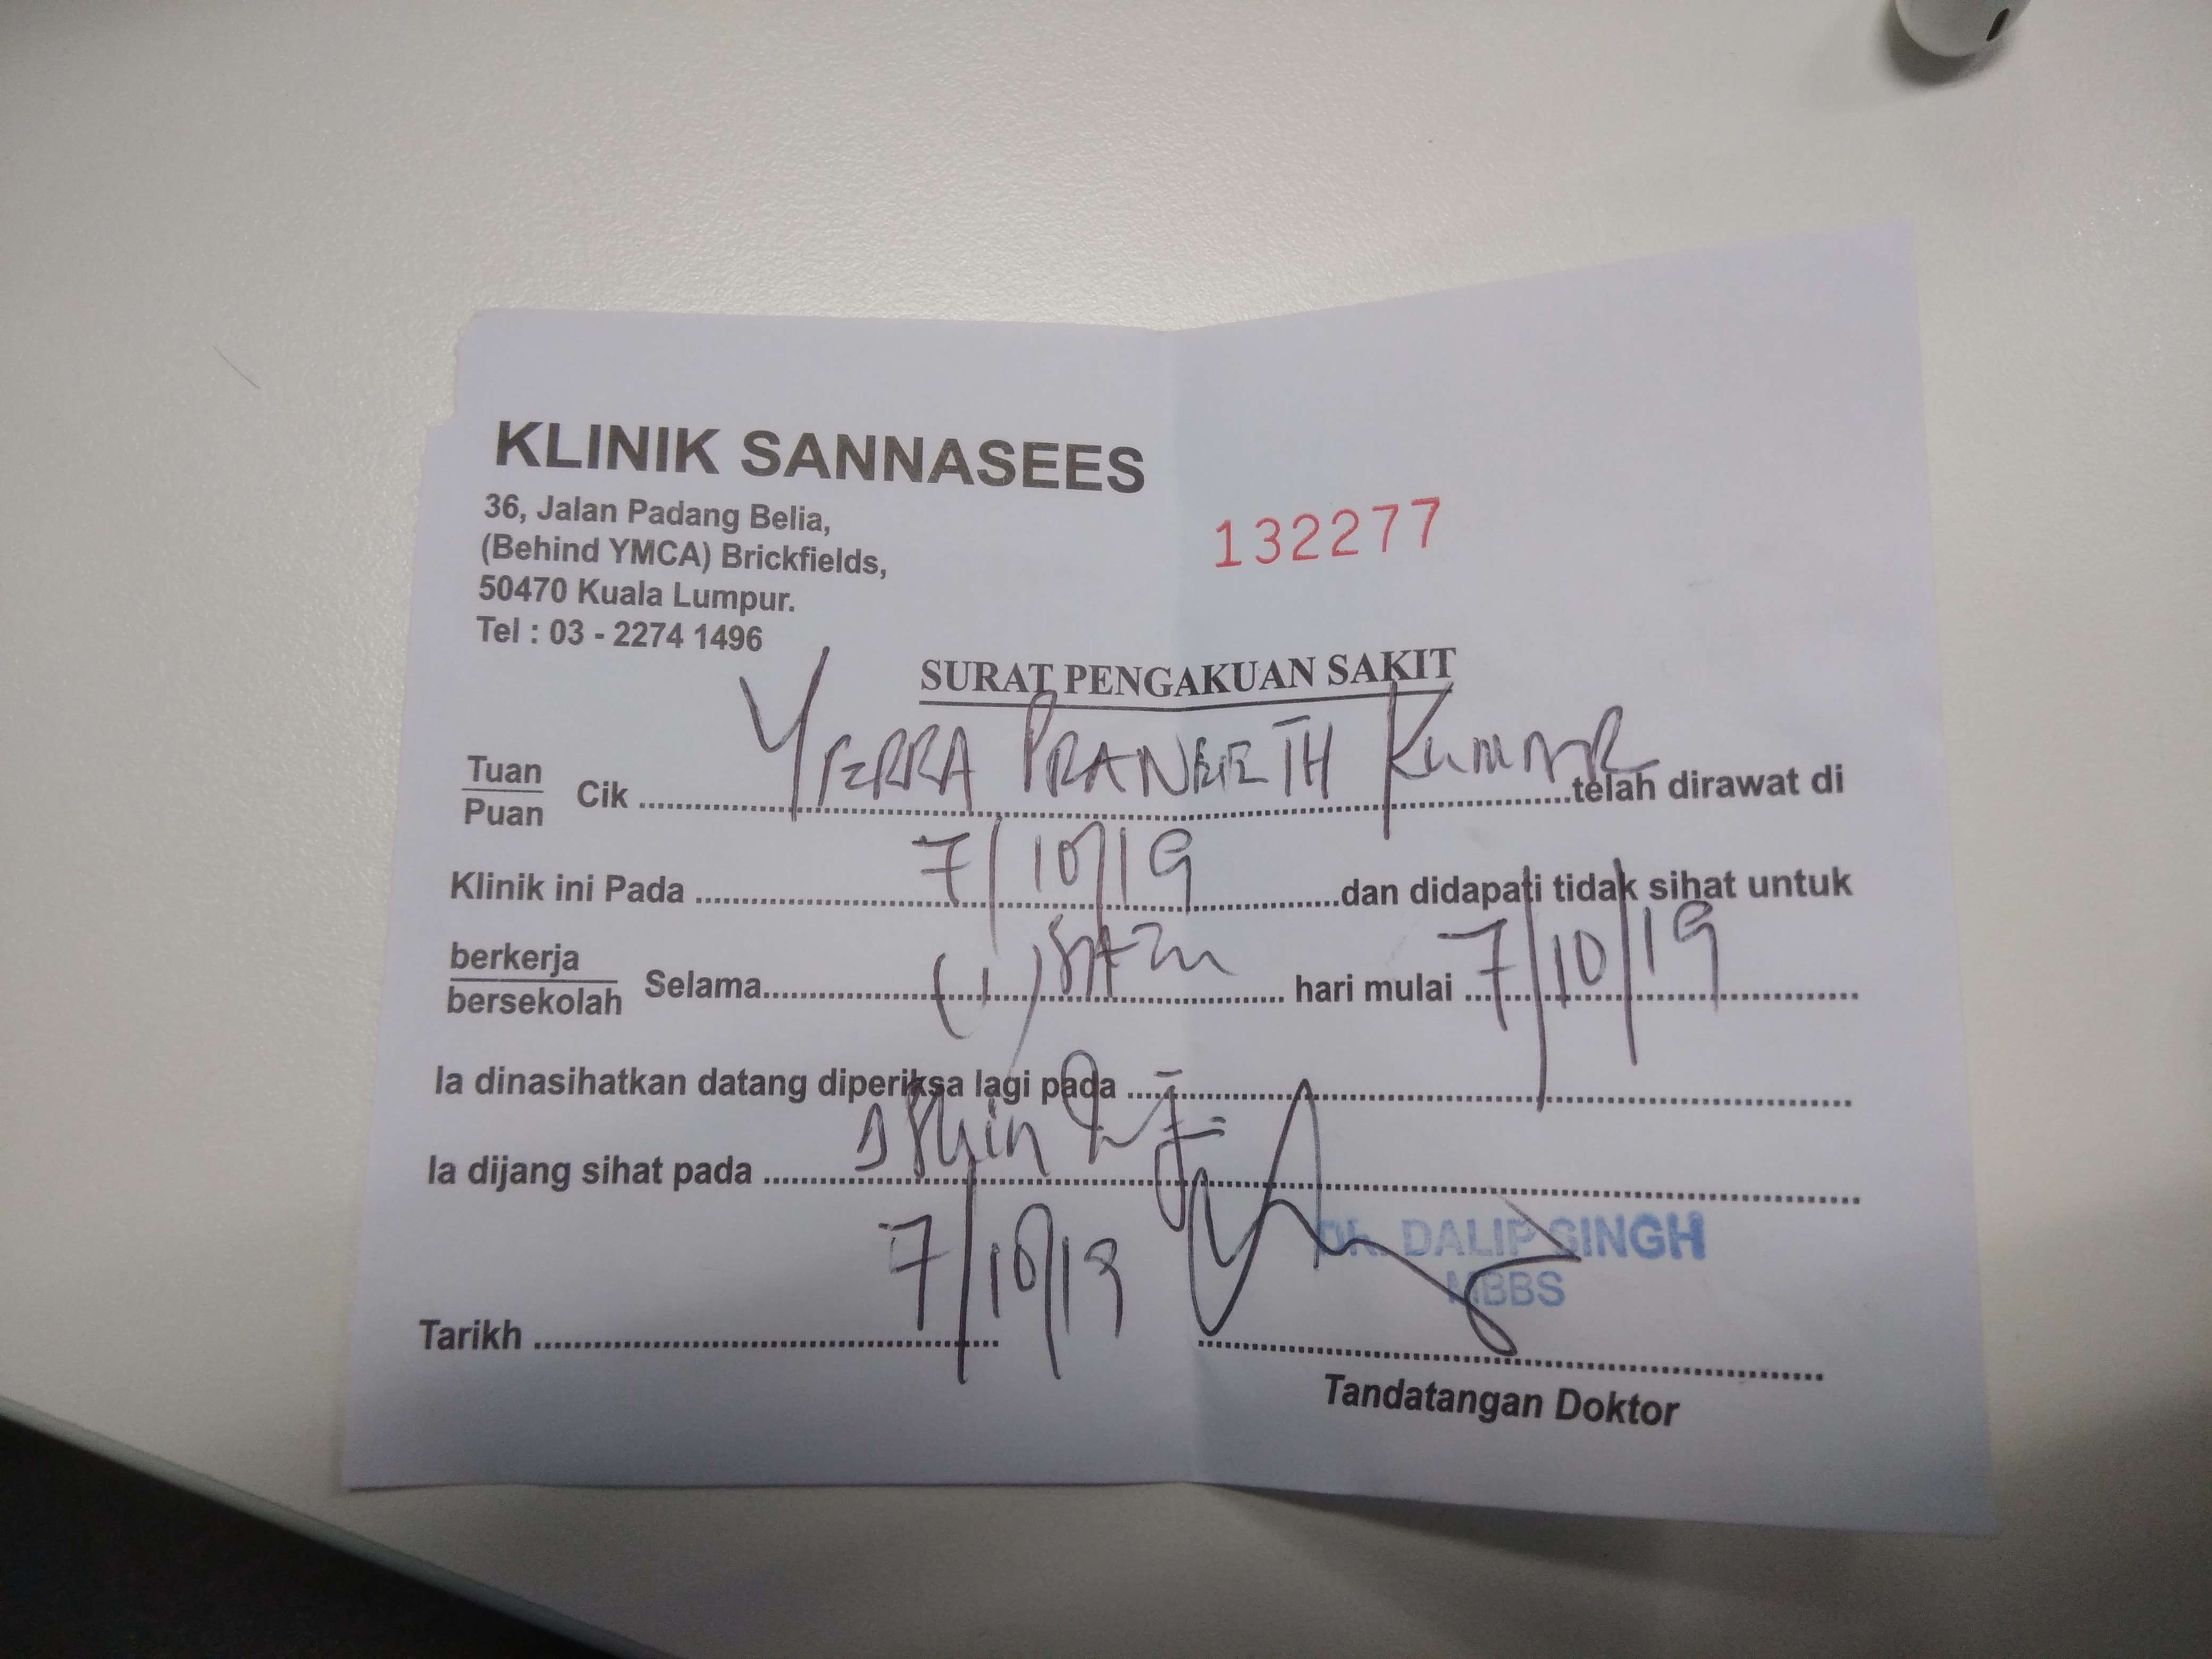 KLINIK SANNASEES
36, Jalan Padang Belia,
(Behind YMCA) Brickfields,
50470 Kuala Lumpur.
Tel : 03 - 2274 1496
132277
SURAT PENGAKUAN SAKIT
Tuan
Puan
Cik YERRA PRANEETH KUMAR telah dirawat di
Klinik ini Pada 7/10/19 dan didapati tidak sihat untuk
berkerja
bersekolah
Selama (1) hari mulai 7/10/19
Ia dinasihatkan datang diperiksa lagi pada
Ia dijang sihat pada
7/10/19
DR. DALIP SINGH
MBBS
Tarikh
Tandatangan Doktor